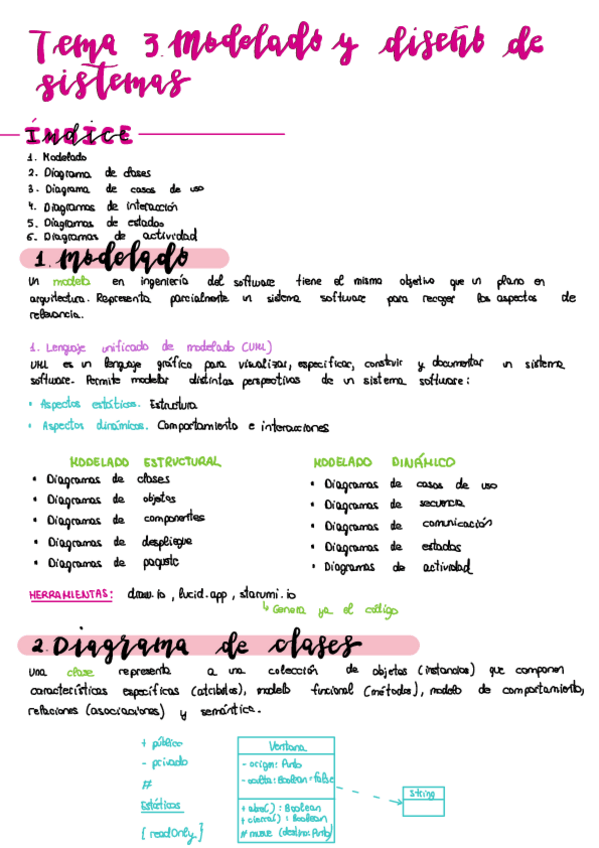 Tema 3. Modelado y diseño de
sistemas
ÍNDICE
1. Modelado
2. Diagrama de clases
3. Diagrama de casos de uso
4. Diagramas de interacción
5. Diagramas de estados
6. Diagramas de actividad
1. Modelado
Un modelo en ingeniería del software tiene el mismo objetivo que un plano en
arquitectura. Representa parcialmente un sistema software para recoger los aspectos de
relevancia.
1. Lenguaje unificado de modelado (UML)
UML es un lenguaje gráfico para visualizar, especificar, construir y documentar un sistema
software. Permite modelar distintas perspectivas de un sistema software:
• Aspectos estáticos. Estructura
• Aspectos dinámicos. Comportamiento e interacciones
MODELADO ESTRUCTURAL
• Diagramas de clases
• Diagramas de objetos
• Diagramas de componentes
• Diagramas de despliegue
• Diagramas de paquete
MODELADO DINÁMICO
• Diagramas de casos de uso
• Diagramas de secuencia
• Diagramas de comunicación
• Diagramas de estados
• Diagramas de actividad
HERRAMIENTAS: draw.io, lucid.app, starumi.io
↳ Genera ya el código
2. Diagrama de clases
Una clase representa a una colección de objetos (instancias) que componen
características específicas (atributos), modelo funcional (métodos), modelo de comportamiento,
relaciones (asociaciones) y semántica.
+ público
- privado
#
Estáticos
{readOnly}
Ventana
- origin: Punto
- oculta: Boolean = false
+ abre(): Boolean
+ cierra(): Boolean
# mueve (destino: Punto)
String